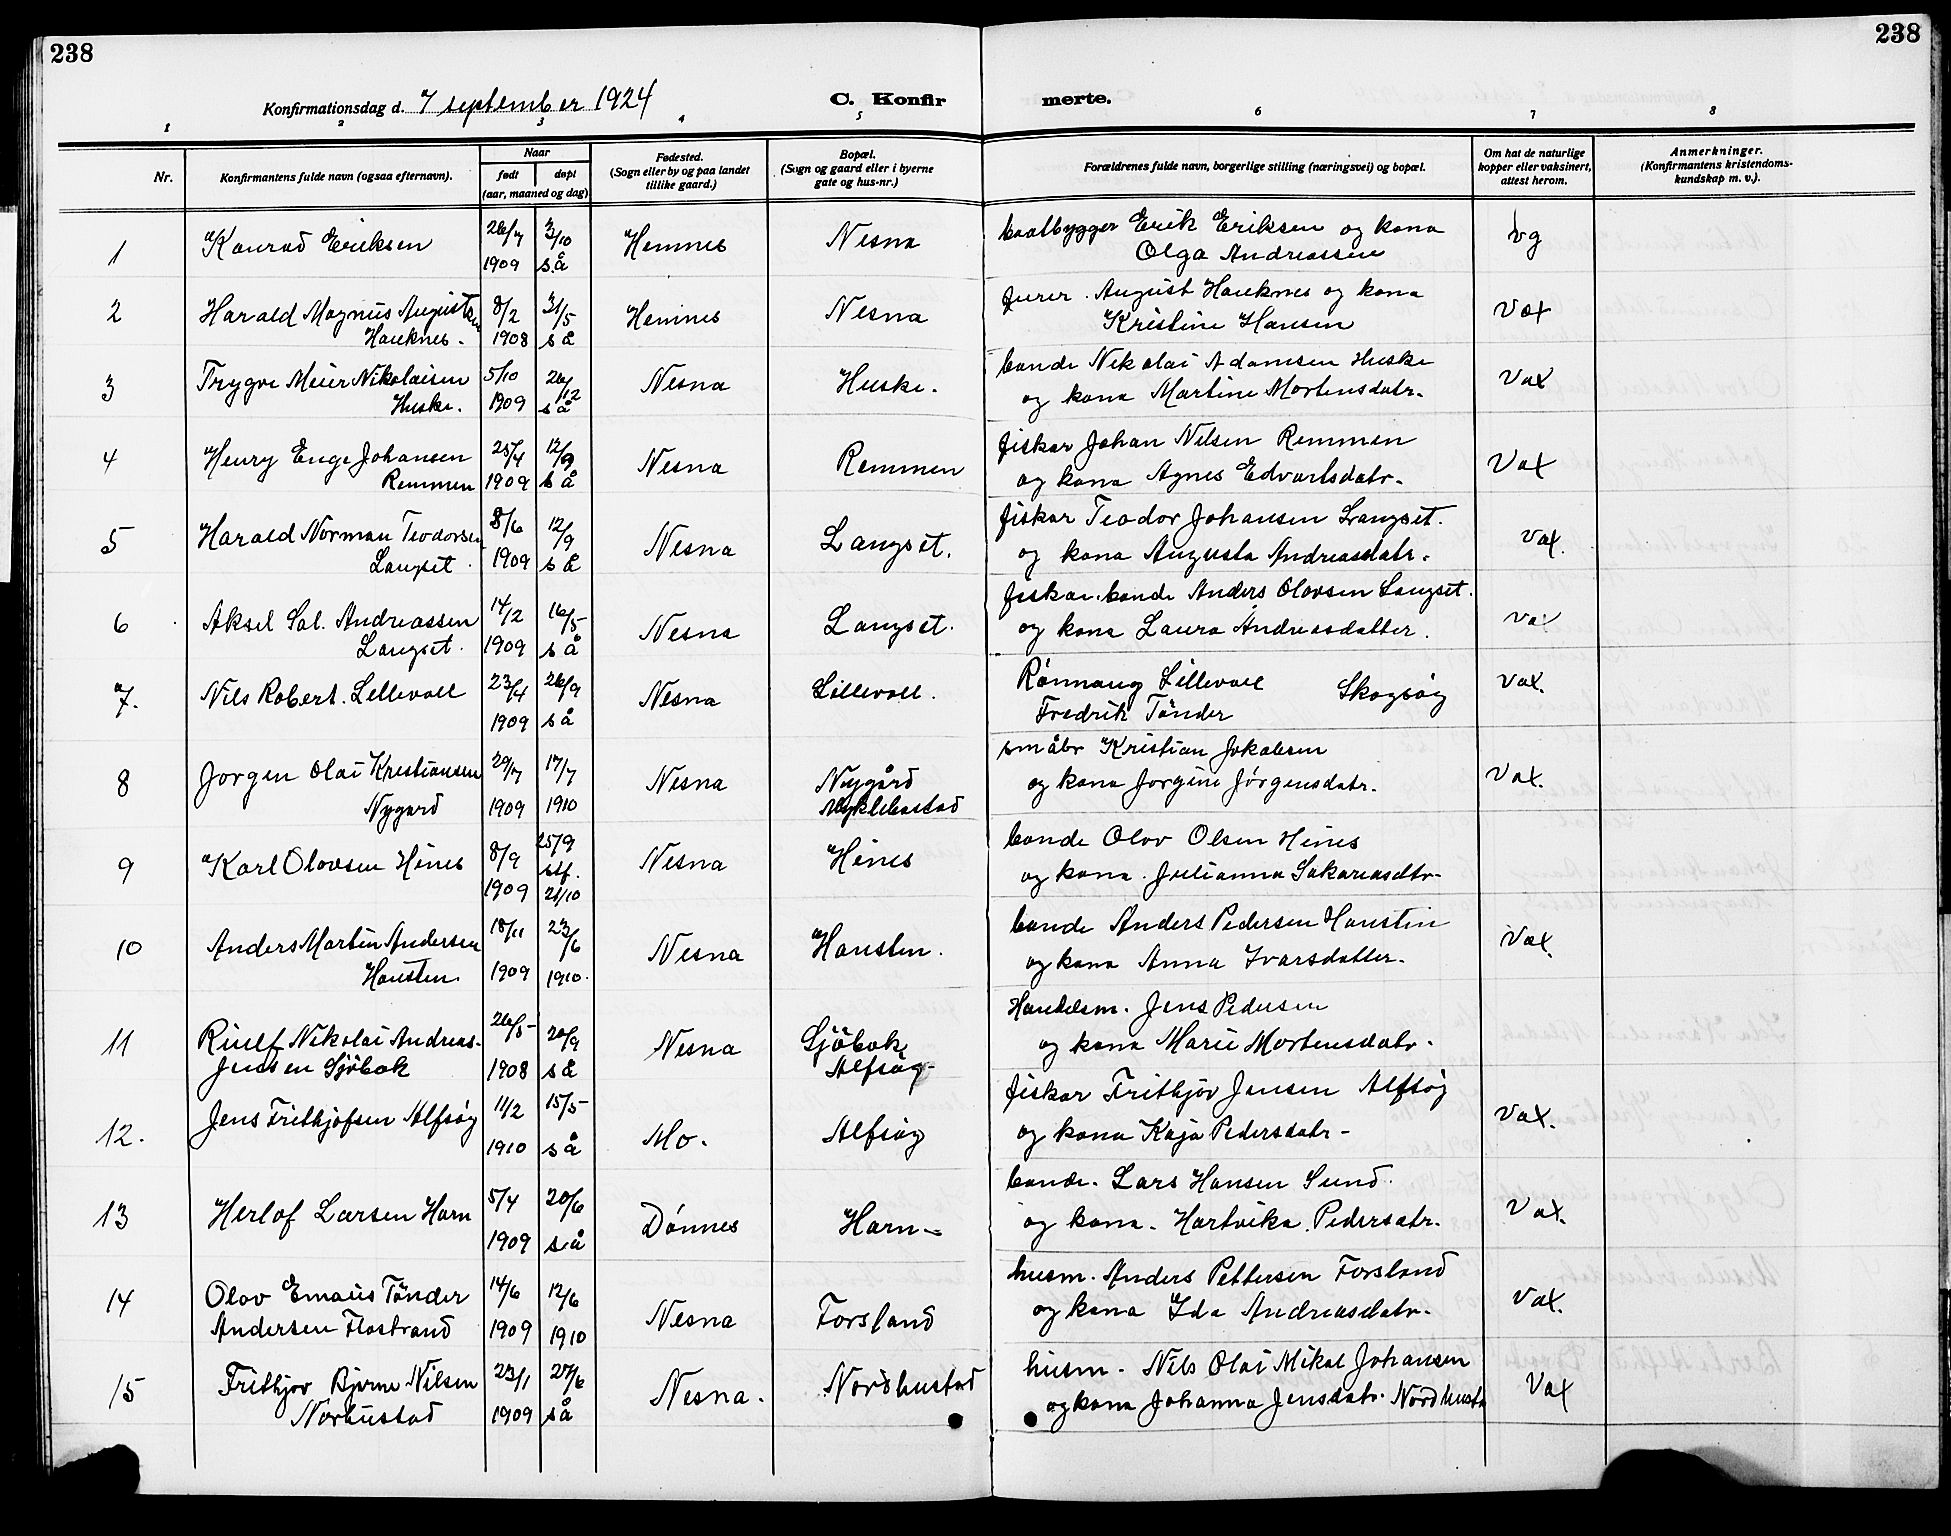 238
238
Konfirmationsdag d. 7 september 1924
C. Konfirmerte.
1 2 3 4 5 6 7 8
Nr.
Konfirmantens fulde navn (ogsaa efternavn).
Naar
født døpt
(aar, maaned og dag)
Fødested.
(Sogn eller by og paa landet
tillike gaard.)
Bopæl.
(Sogn og gaard eller i byerne
gate og hus-nr.)
Forældrenes fulde navn, borgerlige stilling (næringsvei) og bopæl.
Om hat de naturlige
kopper eller vaksinert,
attest herom.
Anmerkninger.
(Konfirmantens kristendoms-
kundskap m. v.).
1 Konrad Eriksen 26/7 3/10 Hemnes Nesna baatbygger Erik Eriksen og kona vg
1909 s.å Olga Andreassen
2 Harald Magnus Augustsen 8/2 31/5 Hemnes Nesna furer. August Hauknes og kona Vax
Hauknes. 1908 så Kristine Hansen
3 Trygve Meier Nikolaisen 5/10 26/12 Nesna Huske. bonde Nikolai Adamsen Huske Vax
Huske. 1909 så og kona Martine Mortensdatr.
4 Henry Enge Johansen 25/4 12/9 Nesna Remmen fiskar Johan Nilsen Remmen Vax
Remmen 1909 så og kona Agnes Edvartsdatr.
5 Harald Norman Teodorsen 8/6 12/9 Nesna Langset. fiskar Teodor Johansen Langset. Vax.
Langset. 1909 så og kona Augusta Andreasdatr.
6 Aksel Sal. Andreassen 14/2 16/5 Nesna Langset. fiskar.bonde Anders Olovsen Langset. Vax
Langset. 1909 så og kona Laura Andreasdatter.
7. Nils Robert. Lillevoll 23/4 26/9 Nesna Lillevoll. Rönnaug Lillevoll Skogsöy Vax.
1909 så Fredrik Tönder
8 Jorgen Olai Kristiansen 29/7 17/7 Nesna Nygård småbr Kristian Jakobsen Vax.
Nygård 1909 1910 Myklebostad og kona Jorgine Jörgensdatr.
9 Karl Olovsen Hines 8/9 25/9 Nesna Hines bonde Olov Olsen Hines
stf.
1909 21/10 og kona. Julianna Sakariasdtr.
10 Anders Martin Andersen 18/11 23/6 Nesna Hausten. bonde Anders Pedersen Haustin Vax.
Hausten. 1909 1910. og kona Anna Ivarsdatter.
11 Riulf Nikolai Andreas- 26/5 20/9 Nesna Sjöbok, Handelsm. Jens Pedersen
Jensen Sjöbok 1908 så Alfsöy og kona Marie Mortensdatr.
12. Jens Frithjofsen Alfsöy 11/2 15/5 Mo. Alfsöy fiskar Frithjov Jensen Alfsöy Vax.
1910 så og kona Kaja Pedersdatr-
13 Herlof Larsen Horn 5/4 20/6 Dönnes Horn- bonde. Lars Hansen Sund. Vax.
1909 så og kona. Hartvika. Pedersdtr.
14 Olov Emaus Tönder 14/6 12/6 Nesna Forsland husm. Anders Pettersen Forsland Vax.
Andersen Flostrand 1909 1910 og kona Ida Andreasdatr.
15 Frithjov Bjerne Nilsen 23/1 27/6 Nesna. Nordhustad husm. Nils Olai Mikal Johansen Vax
Norhustad 1909 så og kona Johanna Jensdatr. Nordhusta